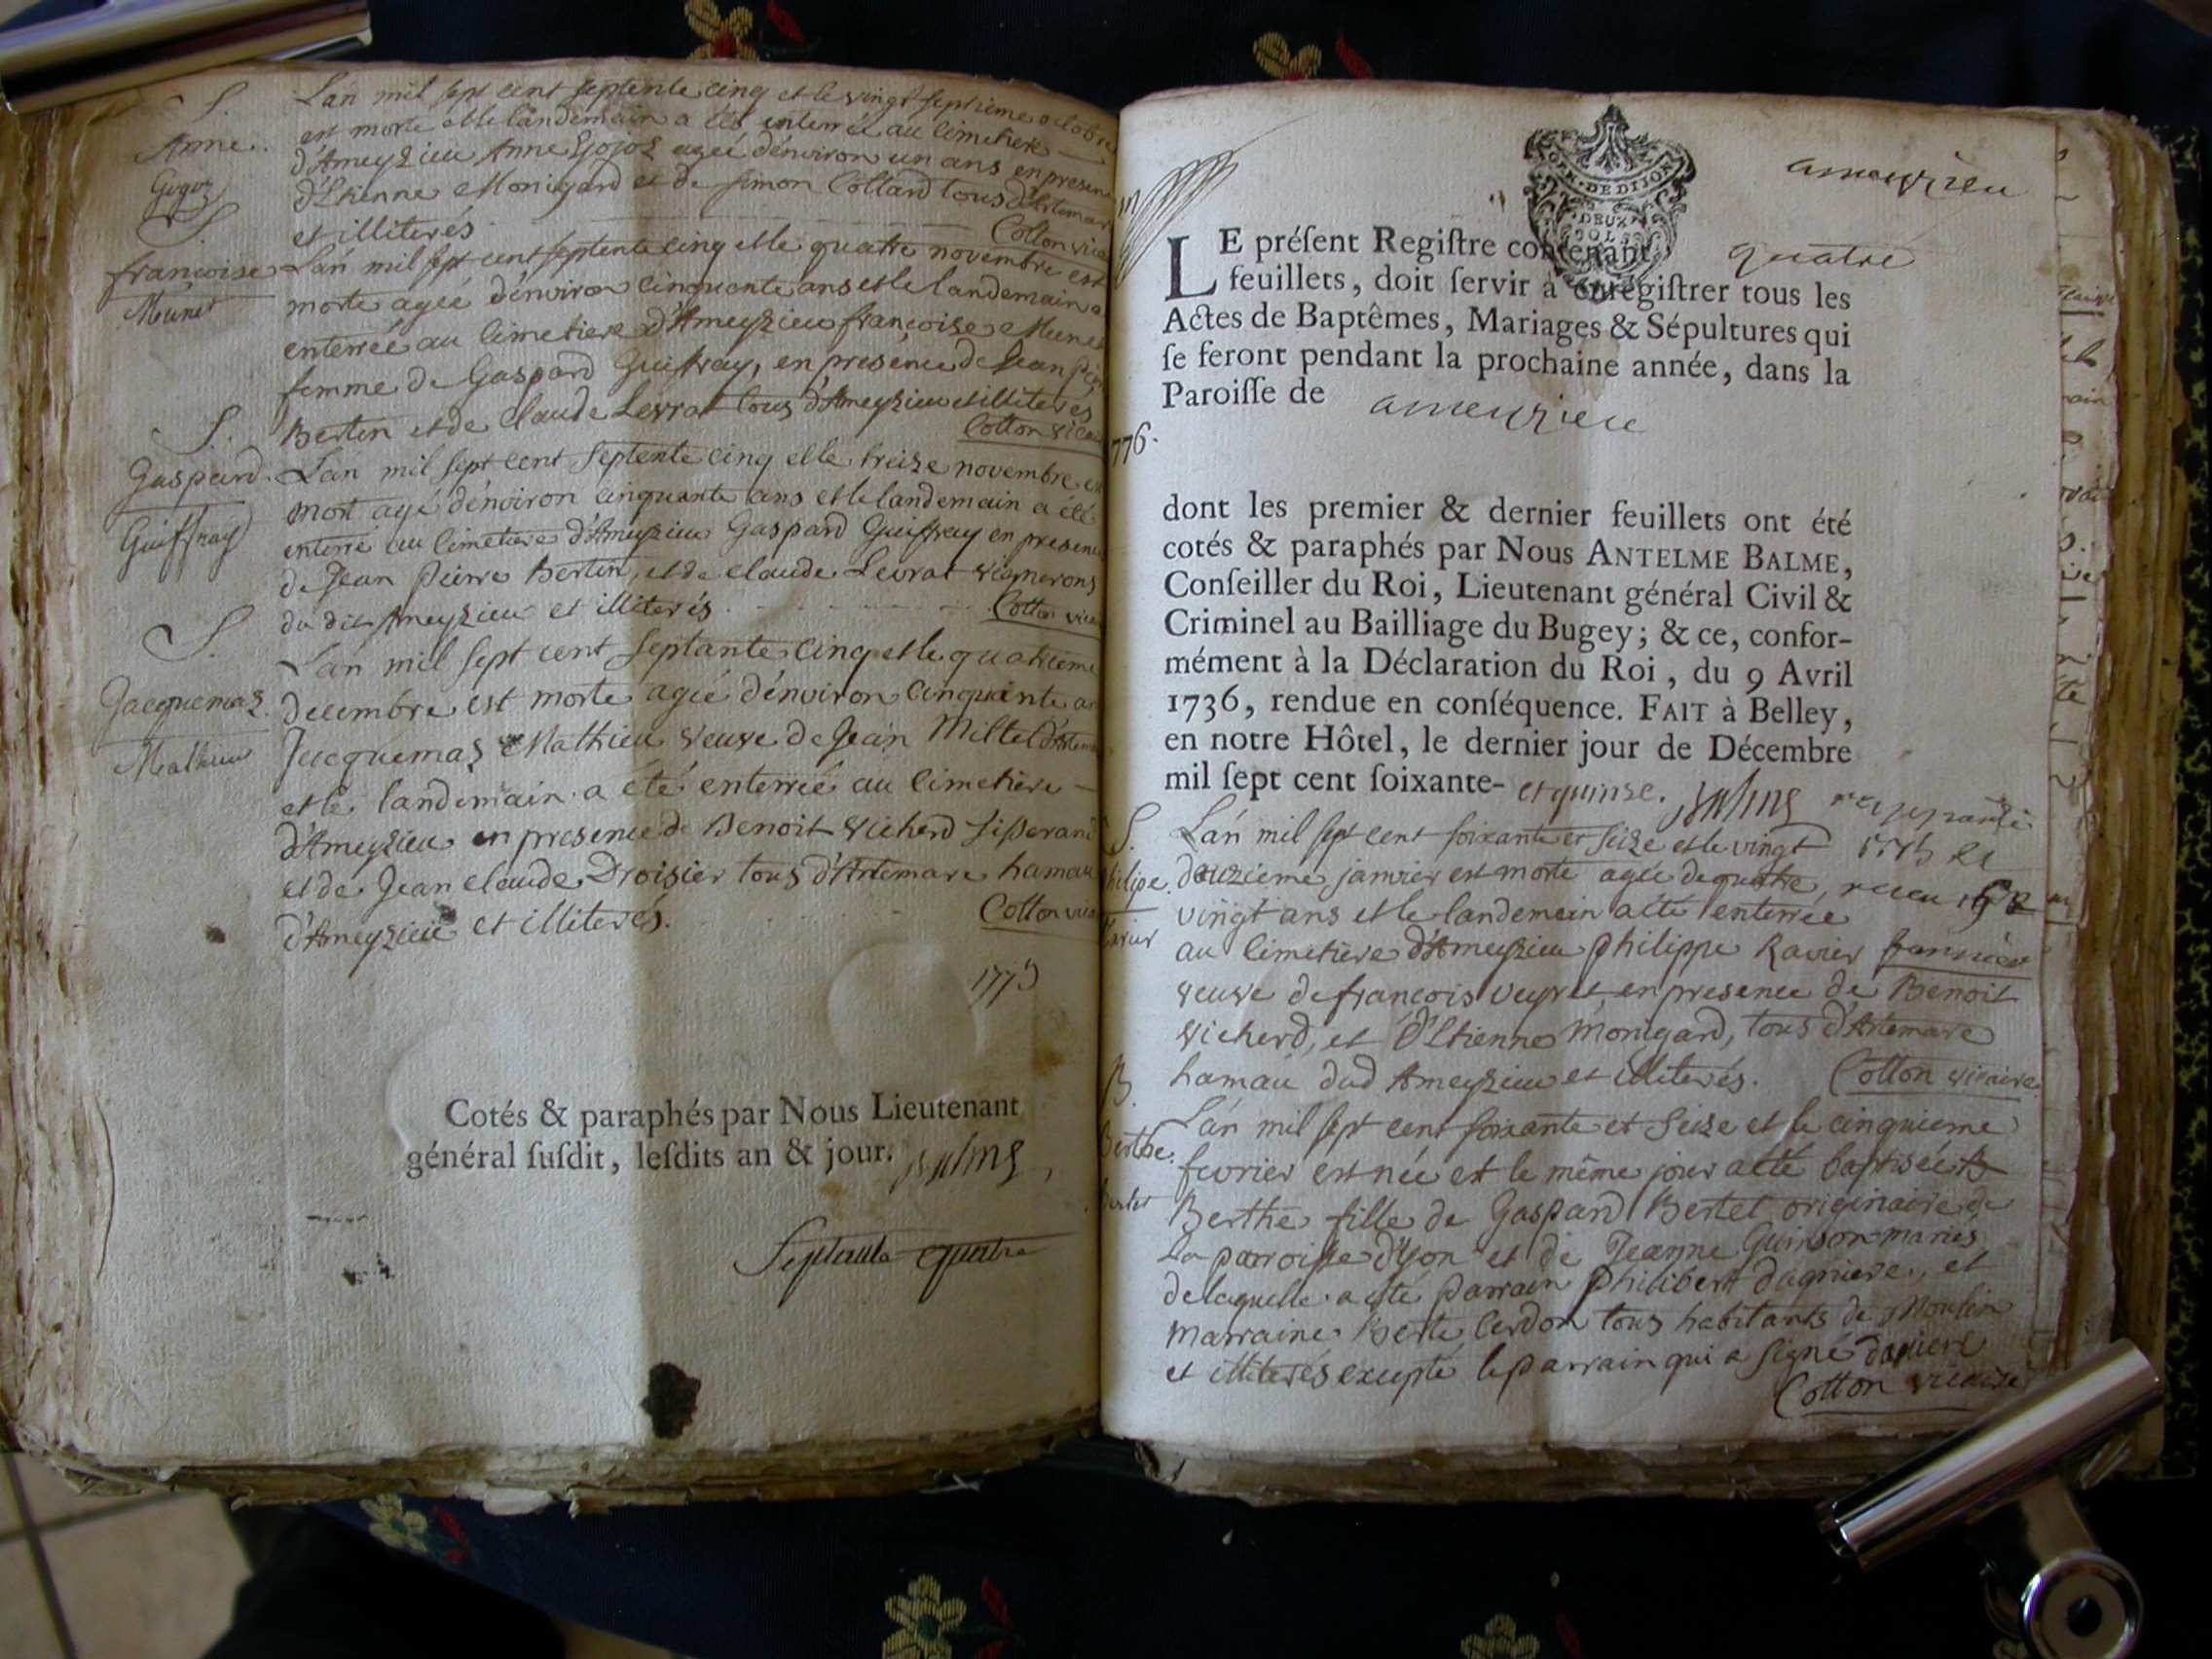 S.
Anne
Gogoz
L'an mil sept cent septente cinq et le vingt septieme octobre
est morte et le landemain a été enterrée au cimetiere
d'Ameyzieu Anne Gojoz ageé d'environ un ans en presence
d'Etienne Monigard et de simon Collard tous d'Artemare
et illiterés
Cotton vicai
S.
francoise
Munet
L'an mil sept cent septente cinq et le quatre novembre est
morte ageé d'environ cinquante ans et le landemain a
enterrée au cimetiere d'Ameyzieu francoise Munet
femme de Gaspard Guiffray, en presence de Jean pierre
Bertin et de claude Levrat tous d'Ameyzieu et illiterés
Cotton vicai
S.
Gaspard
Guiffray
L'an mil sept cent septente cinq et le treize novembre est
mort agé d'environ cinquante ans et le landemain a été
enterré au cimetiere d'Ameyzieu Gaspard Guiffray en presence
de Jean pierre Bertin, et de claude Levrat vignerons
du dit Ameyzieu et illiterés
Cotton vicai
S.
Jacquemaz
Mathieu
L'an mil sept cent septante cinq et le quatrieme
decembre est morte ageé d'environ cinquante an
Jacquemaz Mathieu veuve de Jean Millet d'Artema
et le landemain a été enterrée au cimetiere
d'Ameyzieu en presence de Benoit vicherd tisserand
et de Jean claude Droisier tous d'Artemare hamau
d'Ameyzieu et illiterés.
Cotton vica
1775
Cotés & paraphés par Nous Lieutenant
général susdit, lesdits an & jour. Balme
Septante quatre
COM. DE DIJON
DEUX
SOLS
ameyzieu
LE présent Registre contenant quatre
feuillets, doit servir à enregistrer tous les
Actes de Baptêmes, Mariages & Sépultures qui
se feront pendant la prochaine année, dans la
Paroisse de ameyzieu
776.
dont les premier & dernier feuillets ont été
cotés & paraphés par Nous ANTELME BALME,
Conseiller du Roi, Lieutenant général Civil &
Criminel au Bailliage du Bugey; & ce, confor-
mément à la Déclaration du Roi, du 9 Avril
1736, rendue en conséquence. FAIT à Belley,
en notre Hôtel, le dernier jour de Décembre
mil sept cent soixante- et quinse. Balme
S.
hilipe
Ravier
L'an mil sept cent soixante et seize et le vingt
douzieme janvier est morte ageé de quatre
vingt ans et le landemain a été enterrée
au cimetiere d'Ameyzieu philippe Ravier
veuve de francois veyret en presence de Benoit
vicherd, et d'Etienne Monigard, tous d'Artemare
hamau dud Ameyzieu et illiterés. Cotton vicaire
B.
Berthe
Bertet
L'an mil sept cent soixante et seize et le cinquieme
fevrier est née et le même jour a été baptisée
Berthe fille de Gaspard Bertet originaire de
la parroisse d'yon et de Jeanne Guinson mariés
de laquelle a été parrain philibert dagniere, et
marraine Berte Cerdon tous habitants de Moulin
et illiterés excepté le parrain qui a signé daniere
Cotton vicaire